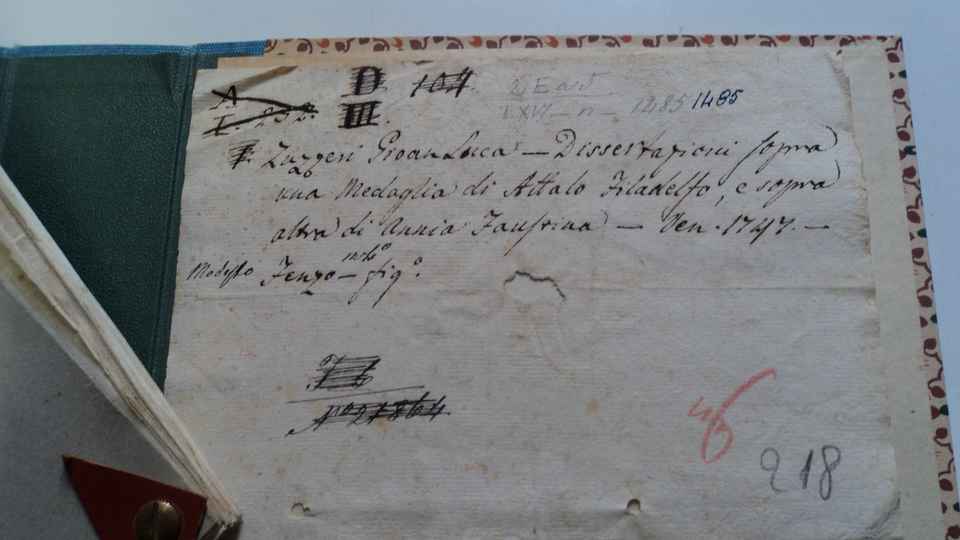 A D 104
I. III 1485 1485
Zuzzeri Gioan Luca — Dissertazioni sopra
una Medaglia di Attalo Filadelfo, e sopra
altra di Annia Faustina — Ven. 1747. —
Modesto Fenzo — fig.º
Nº 21864
218